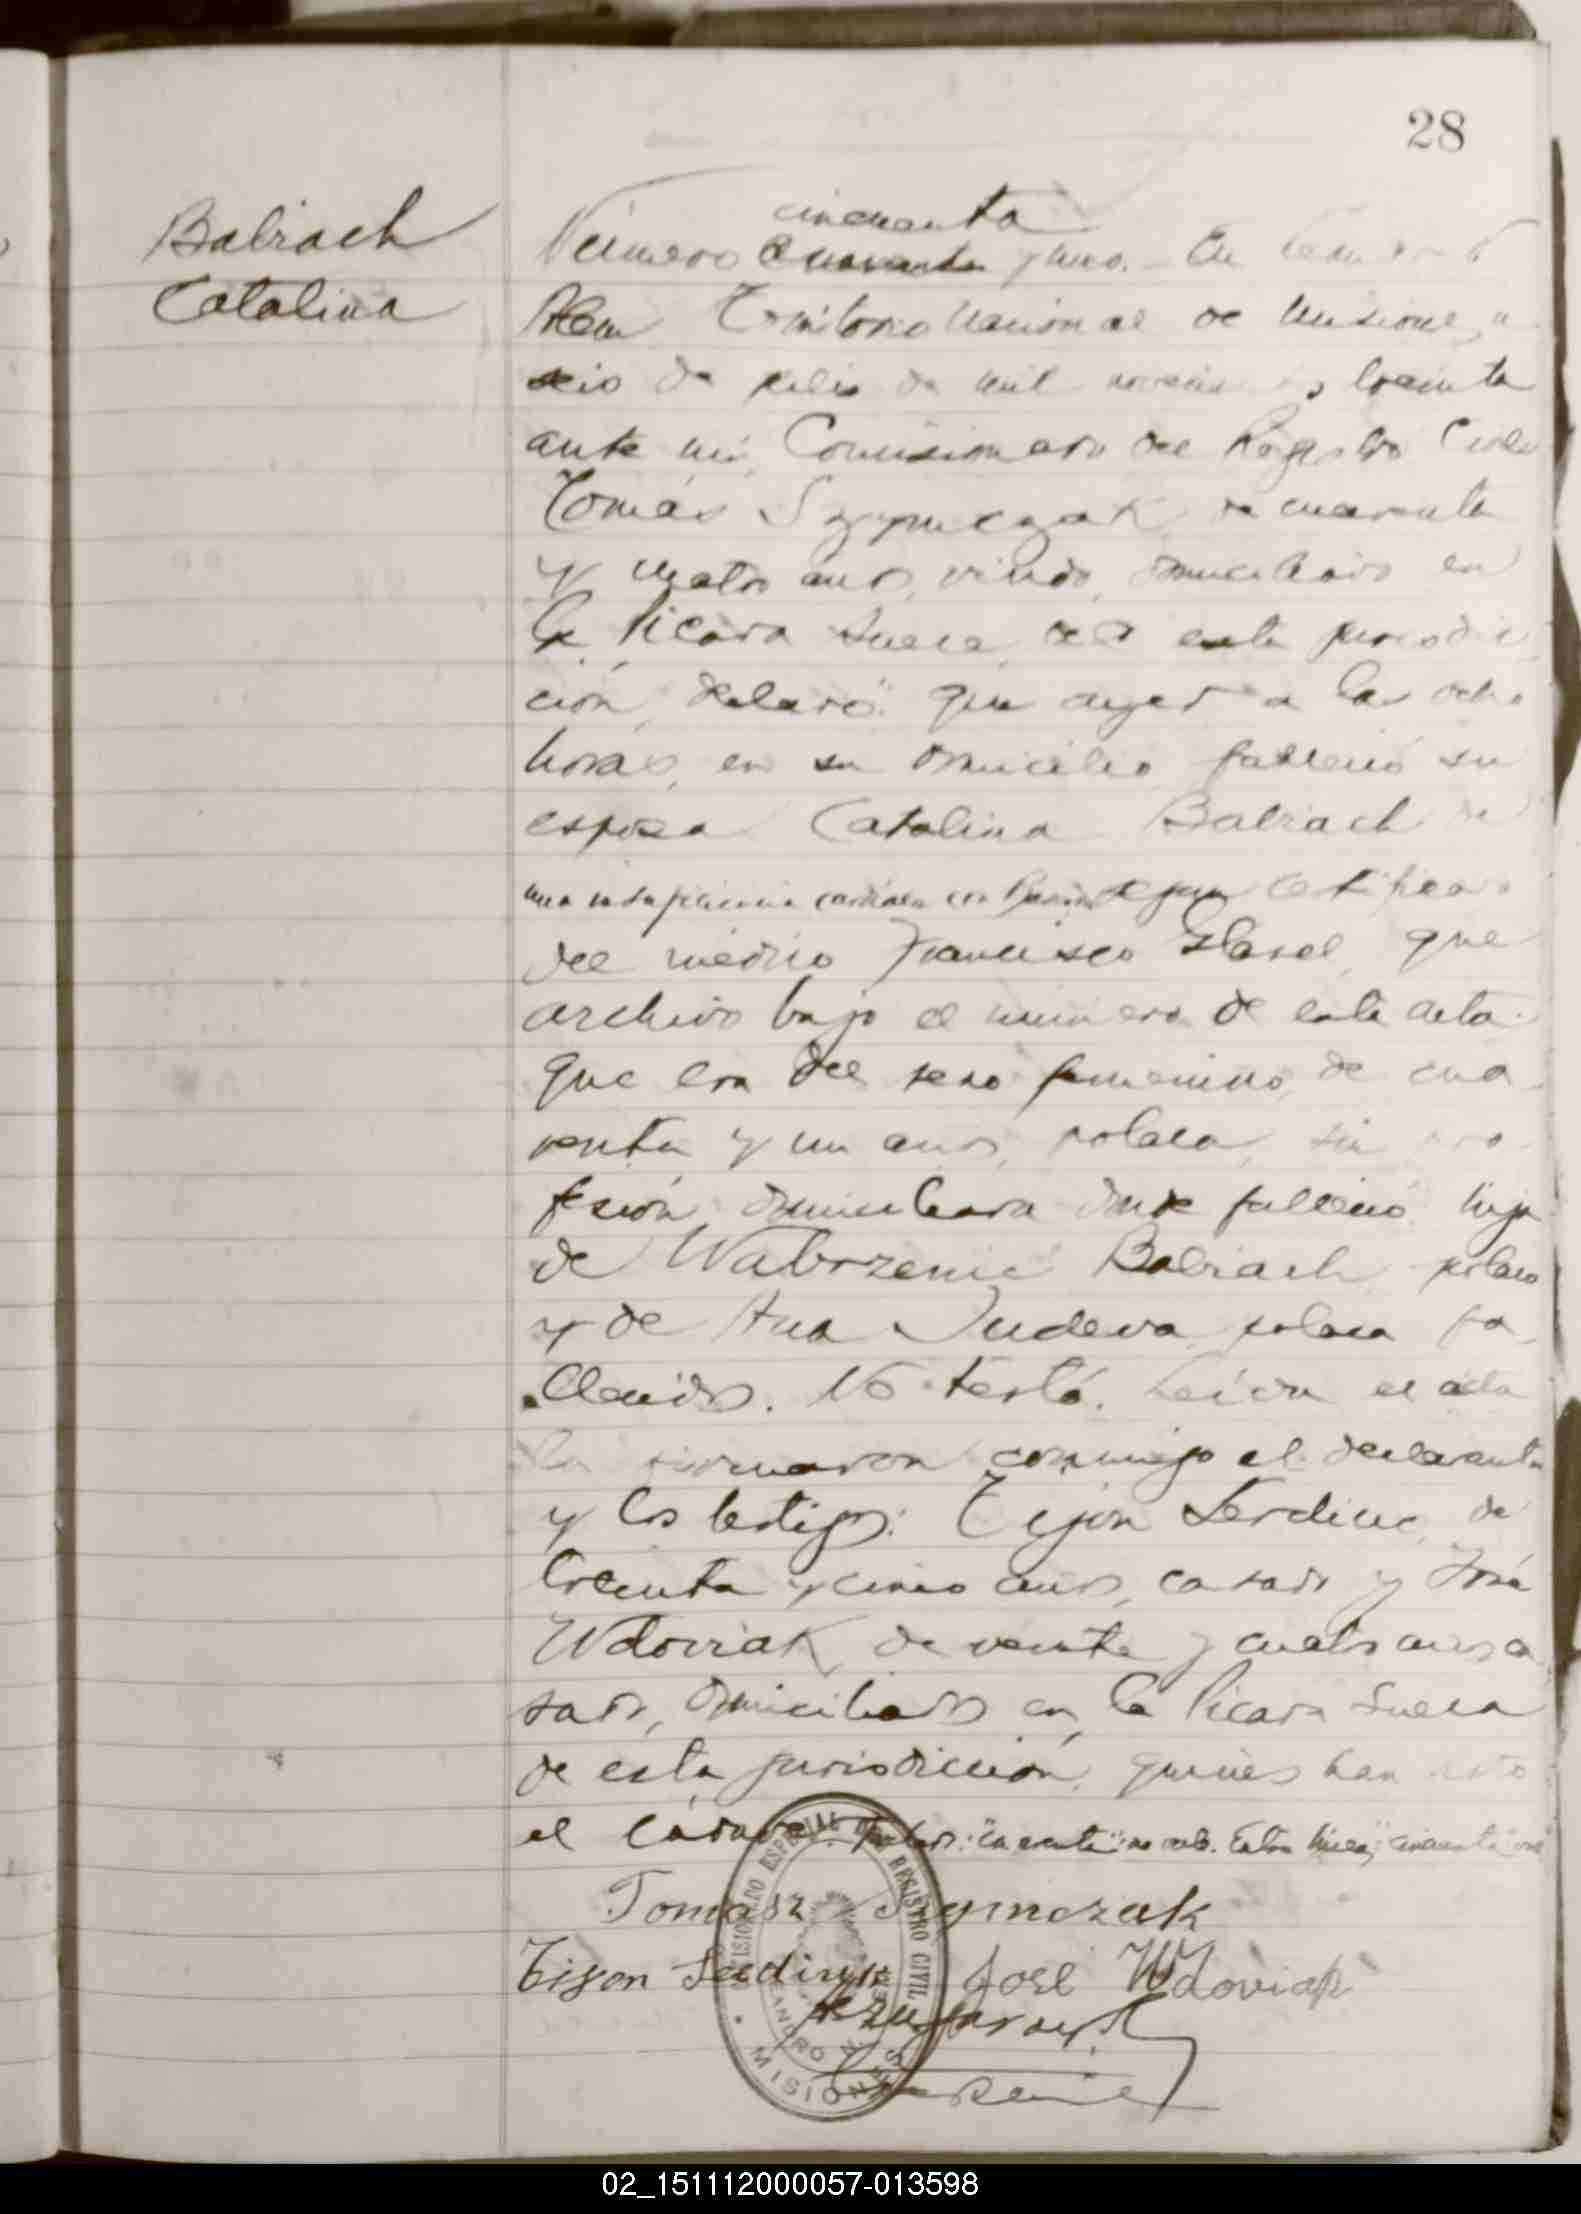 28
Babiach
Catalina
cincuenta
Número cuarenta y uno. En Leandro N.
Alem Territorio Nacional de Misiones, a
seis de julio de mil novecientos treinta
ante mi, Comisionado del Registro Civil
Tomás Szymczak, de cuarenta
y cuatro años, viudo, domiciliado en
la Picada Sueca, de esta jurisdic
ción, declaró: que ayer a las ocho
horas, en su domicilio falleció su
esposa Catalina Babiach de
una insuficiencia cardíaca según certificado
del médico Francisco que
archivo bajo el número de esta acta.
que era del sexo femenino, de cua
renta y un años, polaca, sin pro
fesión, domiciliada donde falleció hija
de Wabrzenic Babiach, polaco
y de Ana Judeva, polaca fa
llecidos. No testó. Leída el acta
la firmaron conmigo el declarante
y los testigos: Tejon Serdiuc, de
treinta y cinco años, casado y José
Wdoviak, de veinte y cuatro años ca
sado, domiciliados en la Picada Sueca
de esta jurisdicción, quienes han visto
el cadáver. Testado: "cuarenta": no vale. Entre líneas: "cincuenta" vale
Tomasz Szymczak
Tison Serdiuk José Wdoviak
COMISIONADO ESPECIAL DEL REGISTRO CIVIL
LEANDRO N. ALEM
MISIONES
02_151112000057-013598